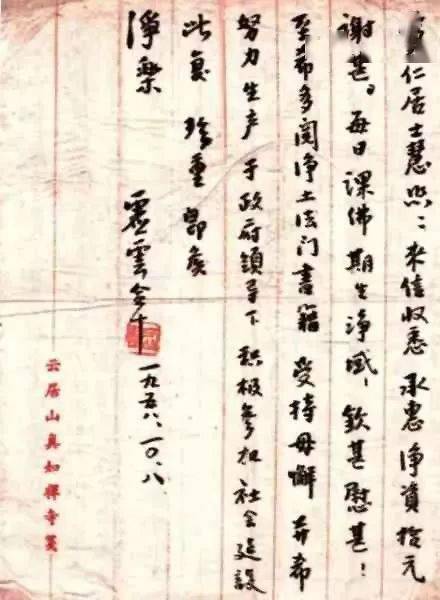 仁居士慧照：来信收悉 承惠淨資拾元
谢甚。每日课佛 期生淨域，欽甚慰甚！
至希多阅淨土法门書籍 受持毋懈 并希
努力生产 于政府领导下 积极参加社会建設
此复 珍重 即颂
淨樂
虚雲合十 一九五六、一〇、八
云居山真如禅寺箋